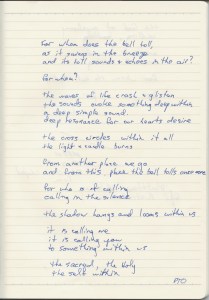 For whom does the bell toll,
as it sways in the breeze
and its toll sounds & echoes in the air?
For whom?
the waves of life crash & glisten
the sounds evoke something deep within
a deep simple sound.
deep resonance for our hearts desire
the cross circles within it all
the light & candle burns
From another place we go
and from this place the bell tolls
for who is it calling
calling in the silence
the shadow hangs and looms within us
it is calling me
it is calling you
to something within us
the sacred, the Holy
the self within
PTO